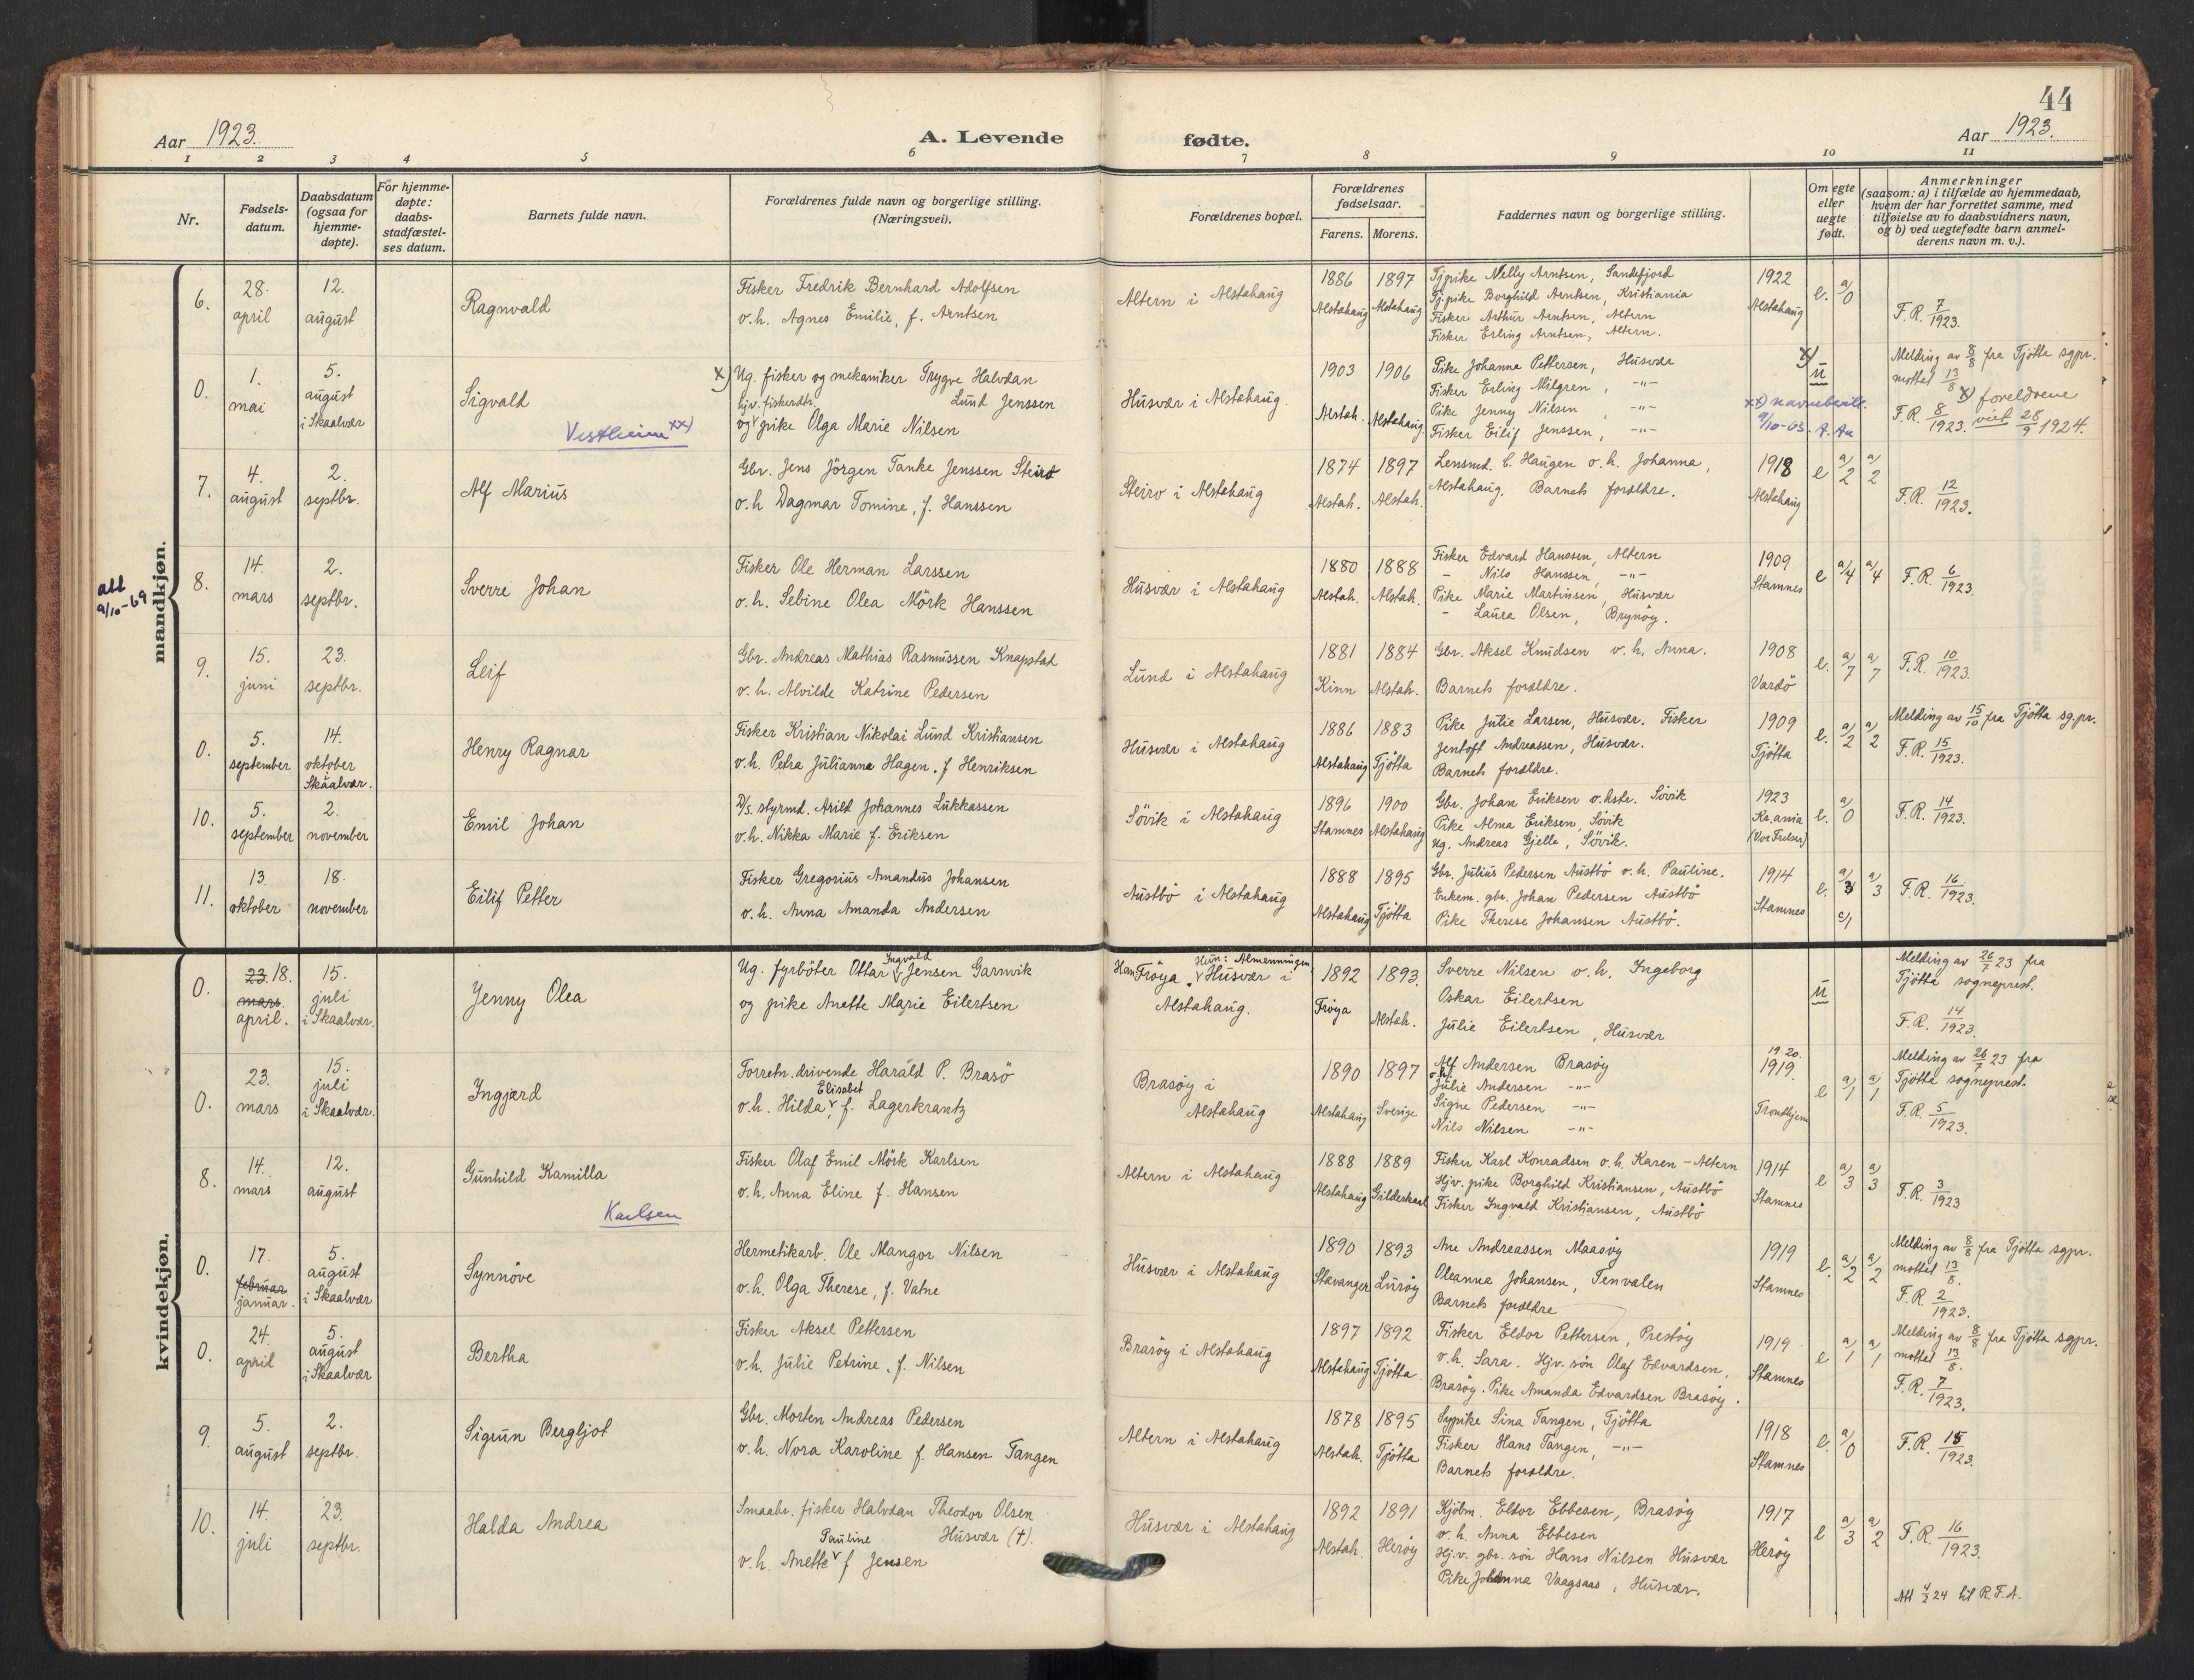 44
Aar 1923.
A. Levende
fødte.
Aar 1923.
1 2 3 4 5 6 7 8 9 10 11
Nr.
Fødsels-
datum.
Daabsdatum
(ogsaa for
hjemme-
døpte).
For hjemme-
døpte:
daabs-
stadfæstel-
ses datum.
Barnets fulde navn.
Forældrenes fulde navn og borgerlige stilling.
(Næringsvei).
Forældrenes bopæl.
Forældrenes
fødselsaar.
Farens. Morens.
Faddernes navn og borgerlige stilling.
Om egte
eller
uegte
født.
Anmerkninger
(saasom: a) i tilfælde av hjemmedaab,
hvem der har forrettet samme, med
tilføielse av to daabsvidners navn,
og b) ved uegtefødte barn anmel-
derens navn m. v.).
mandkjøn.
6.
28.
april
12.
august
Ragnvald
Fisker Fredrik Bernhard Adolfsen
o. h. Agnes Emilie, f. Arntsen
Altern i Alstahaug
1886 1897
Alstahaug Alstahaug
Tjpike Nelly Arntsen, Sandefjord
Tj.pike Borghild Arntsen, Kristiania
Fisker Arthur Arntsen, Altern
Fisker Erling Arntsen, Altern.
1922
Alstahaug
e. a/0
F. R. 7/1923.
0.
1.
mai
5.
august
i Skaalvær
Sigvald
Vestheim xx)
x) Ug. fisker og mekaniker Trygve Halvdan
Lund Jenssen
hjv. fiskerdtr.
og v pike Olga Marie Nilsen
Husvær i Alstahaug.
1903 1906
Alstah. Alstahaug.
Pike Johanna Pettersen, Husvær
Fisker Erling Milgren, -"-
Pike Jenny Nilsen, -"-
Fisker Eilif Jenssen, -"-
x)
u
xx) navnebevill.
9/10-63. A. Aa
Melding av 8/8 fra Tjøtta sgpr.
mottat 13/8
x) foreldrene
F. R. 8/1923. viet 28/9 1924.
7.
4.
august
2.
septbr.
Alf Marius
Gbr. Jens Jörgen Tanke Jenssen Steiro
o. h Dagmar Tomine, f. Hanssen
Steiro i Alstahaug
1874 1897
Alstah. Alstah.
Lensmd. C. Haugen o. h. Johanna,
Alstahaug. Barnets forældre.
1918
Alstahaug
e a/2 a/2
F. R. 12/1923.
att
9/10-69
8.
14.
mars
2.
septbr.
Sverre Johan
Fisker Ole Herman Larssen
o. h. Sebine Olea Mörk Hanssen
Husvær i Alstahaug
1880 1888
Alstah. Alstah.
Fisker Edvard Hanssen, Altern
- Nils Hanssen, -"-
Pike Marie Martinsen, Husvær
- Laura Olsen, Brynöy.
1909
Stamnes
e a/4 a/4
F. R. 6/1923.
9.
15.
juni
23.
septbr.
Leif
Gbr. Andreas Mathias Rasmussen Knapstad
o. h. Alvilde Katrine Pedersen
Lund i Alstahaug
1881 1884
Kinn Alstah.
Gbr. Aksel Knudsen o. h. Anna.
Barnets forældre.
1908
Vardö
e. a/7 a/7
F. R. 10/1923.
0.
5.
september
14.
oktober
i Skaalvær.
Henry Ragnar
Fisker Kristian Nikolai Lund Kristiansen
o. h. Petra Julianna Hagen, f Henriksen
Husvær i Alstahaug
1886 1883
Alstahaug Tjötta
Pike Julie Larsen, Husvær. Fisker
Jentoft Andreassen, Husvær.
Barnets forældre.
1909
Tjötta
e. a/2 a/2
Melding av 15/10 fra Tjøtta sg.pr.
F. R. 15/1923.
10.
5.
september
2.
november
Emil Johan
D/s. styrmd. Arild Johannes Lukkassen
o. h. Nikka Marie f. Eriksen
Sövik i Alstahaug
1896 1900
Stamnes Alstahaug
Gbr. Johan Eriksen o. hstr. Sövik
Pike Alma Eriksen, Sövik
Ug. Andreas Gjelle, Sövik.
1923
Kr.ania
(Vor Frelser)
e. a/0
F. R. 14/1923.
11.
13.
oktober
18.
november
Eilif Petter
Fisker Gregorius Amandus Johansen
o. h. Anna Amanda Andersen
Austbö i Alstahaug
1888 1895
Alstahaug Tjötta
Gbr. Julius Pedersen Austbö o. h. Pauline.
Enkem. gbr. Johan Pedersen Austbö
Pike Therese Johansen Austbö.
1914
Stamnes
e. a/3 c/1 a/3
F. R. 16/1923.
kvindekjøn.
0.
23. 18.
mars.
april.
15.
juli
i Skaalvær.
Jenny Olea
Ingvald
Ug. fyrböter Ottar v Jensen Garnvik
og pike Anette Marie Eilertsen
Hun: Almenningen
Han Fröya. v Husvær i
Alstahaug.
1892 1893.
Fröya Alstah.
Sverre Nilsen o. h. Ingeborg
Oskar Eilertsen
Julie Eilertsen, Husvær
u
Melding av 26/7 23 fra
Tjøtta sogneprest.
F. R. 14/1923.
0.
23.
mars
15.
juli
i Skaalvær.
Ingjærd
Forretn. drivende Harald P. Brasö
Elisabet
o. h. Hilda v f. Lagerkrantz
Brasöy i
Alstahaug
1890 1897
Alstahaug Sverige
Alf Andersen Brasöy
o. h.
Julie Andersen -"-
Signe Pedersen -"-
Nils Nilsen -"-
1920.
1919.
Trondhjem
e a/1 a/1
Melding av 26/7 23 fra
Tjøtta sogneprest.
F. R. 5/1923.
8.
14.
mars
12.
august
Gunhild Kamilla
Karlsen
Fisker Olaf Emil Mörk Karlsen
o. h. Anna Eline f. Hansen
Altern i Alstahaug
1888 1889
Alstahaug Gildeskaal
Fisker Karl Konradsen o. h. Karen - Altern
Hjv. pike Borghild Kristiansen, Austbö
Fisker Ingvald Kristiansen, Austbö
1914
Stamnes
e a/3 a/3
F. R. 3/1923
0.
17.
februar
januar.
5.
august
i Skaalvær
Synnöve
Hermetikarb. Ole Mangor Nilsen
o. h. Olga Therese, f. Vatne
Husvær i Alstahaug
1890 1893
Stavanger Luröy
Ane Andreassen Maasöy
Oleanna Johansen, Tenvalen
Barnets forældre
1919
Stamnes
e. a/2 a/2
Melding av 8/8 fra Tjøtta sgpr.
mottat 13/8.
F. R 2/1923.
0.
24.
april
5.
august
i Skaalvær
Bertha
Fisker Aksel Pettersen
o. h. Julie Petrine, f. Nilsen
Brasöy i Alstahaug
1897 1892
Alstahaug Tjötta.
Fisker Eldor Pettersen, Prestöy
o. h. Sara. Hjv. sön Olaf Edvardsen,
Brasöy. Pike Amanda Edvardsen Brasöy.
1919
Stamnes
e a/1 a/1
Melding av 8/8 fra Tjøtta sgpr.
mottat 13/8.
F. R. 7/1923.
9.
5.
august
2.
septbr.
Sigrun Bergljot
Gbr. Morten Andreas Pedersen
o. h. Nora Karoline f. Hansen Tangen
Altern i Alstahaug
1878 1895
Alstah. Tjötta
Sypike Sina Tangen, Tjötta
Fisker Hans Tangen, -"-
Barnets forældre.
1918
Stamnes
e. a/0
F. R. 15/1923.
10.
14.
juli
23.
septbr.
Halda Andrea
Smaabr. fisker Halvdan Theodor Olsen
Husvær (†).
Pauline
o. h. Anette v f Jensen
Husvær i Alstahaug
1892 1891
Alstah. Heröy
Kjöbm. Eldor Ebbesen, Brasöy
o. h. Anna Ebbesen
Hj.v. gbr. sön Hans Nilsen Husvær
Pike Johanna Vaagsaas, Husvær.
1917
Heröy
e a/3 a/2
F. R. 16/1923.
Att 4/2 24 til R. F. A.